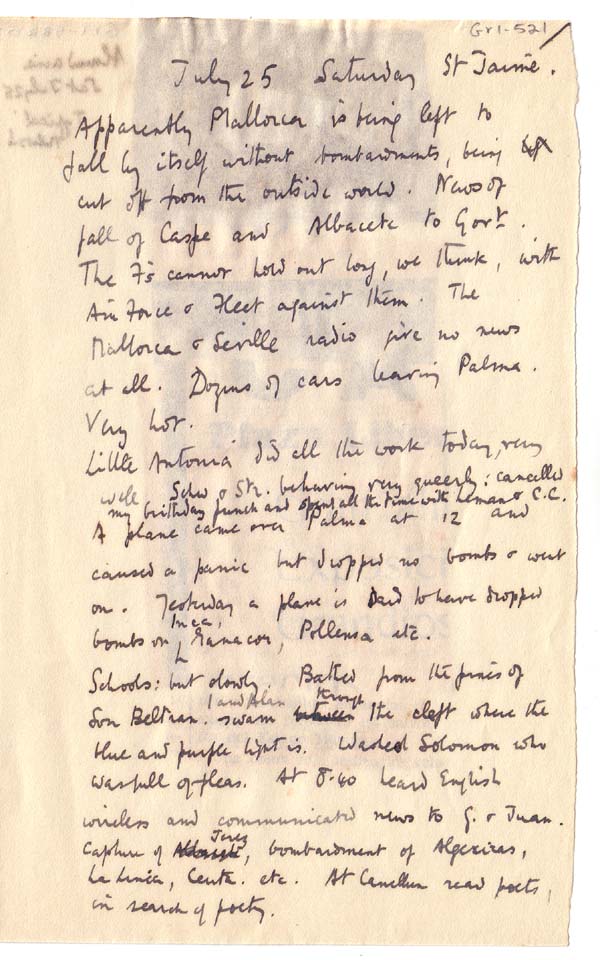 Gr1-521
July 25 Saturday St Jaime.
Apparently Mallorca is being left to
fall by itself without bombardments, being
cut off from the outside world. News of
fall of Caspe and Albacete to Govt.
The F's cannot hold out long, we think, with
Air Force & Fleet against them. The
Mallorca & Seville radio give no news
at all. Dozens of cars leaving Palma.
Very hot.
Little Antonia did all the work today, very
well Schw & Str. behaving very queerly: cancelled
my birthday punch and spent all the time with & C.C.
A plane came over Palma at 12 and
caused a panic but dropped no bombs & went
on. Yesterday a plane is said to have dropped
bombs on Inca, Manacor, Pollensa etc.
Schools: but slowly. Bathed from the pines of
Son Beltran. I and Alan swam through the cleft where the
blue and purple light is. Washed Solomon who
was full of fleas. At 8.40 heard English
wireless and communicated news to G. & Juan.
Capture of Jerez, bombardment of Algeciras,
La Linea, Ceuta. etc. At Canellun read poets,
in search of poetry.